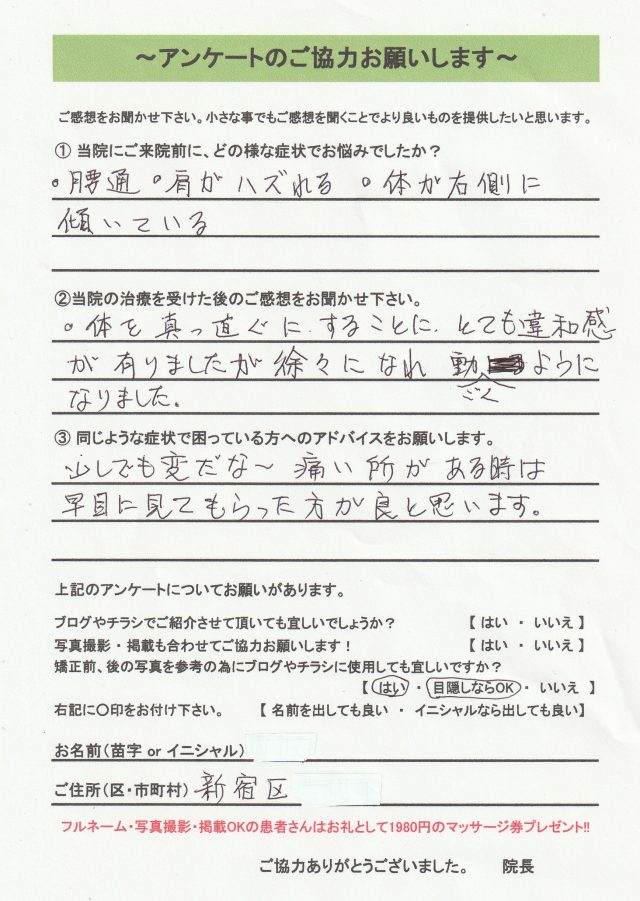 ～アンケートのご協力お願いします～
ご感想をお聞かせ下さい。小さな事でもご感想を聞くことでより良いものを提供したいと思います。
① 当院にご来院前に、どの様な症状でお悩みでしたか？
。腰通 。肩がハズれる 。体が右側に
傾いている
②当院の治療を受けた後のご感想をお聞かせ下さい。
。体を真っ直ぐに、することに、とても違和感
が有りましたが徐々になれ 動ように
ごく
なりました。
③ 同じような症状で困っている方へのアドバイスをお願いします。
少しでも変だな～ 痛い所がある時は
早目に見てもらった方が良と思います。
上記のアンケートについてお願いがあります。
ブログやチラシでご紹介させて頂いても宜しいでしょうか？ 【 はい ・ いいえ 】
写真撮影・掲載も合わせてご協力お願いします！ 【 はい ・ いいえ 】
矯正前、後の写真を参考の為にブログやチラシに使用しても宜しいですか？
【 はい ・ 目隠しならOK ・ いいえ 】
右記に〇印をお付け下さい。 【 名前を出しても良い ・ イニシャルなら出しても良い】
お名前（苗字 or イニシャル）
ご住所（区・市町村） 新宿区
フルネーム・写真撮影・掲載OKの患者さんはお礼として1980円のマッサージ券プレゼント!!
ご協力ありがとうございました。 院長